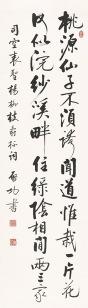 桃源仙子不須誇聞道惟栽一片花
何似浣紗溪畔住綠陰相間兩三家
司空表聖楊柳枝壽杯詞 启功書